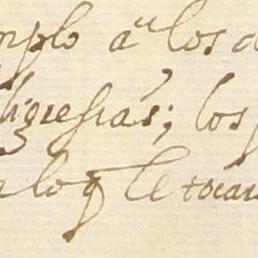 mplo á los d
ligresias; los
a lo q̃ le tocan